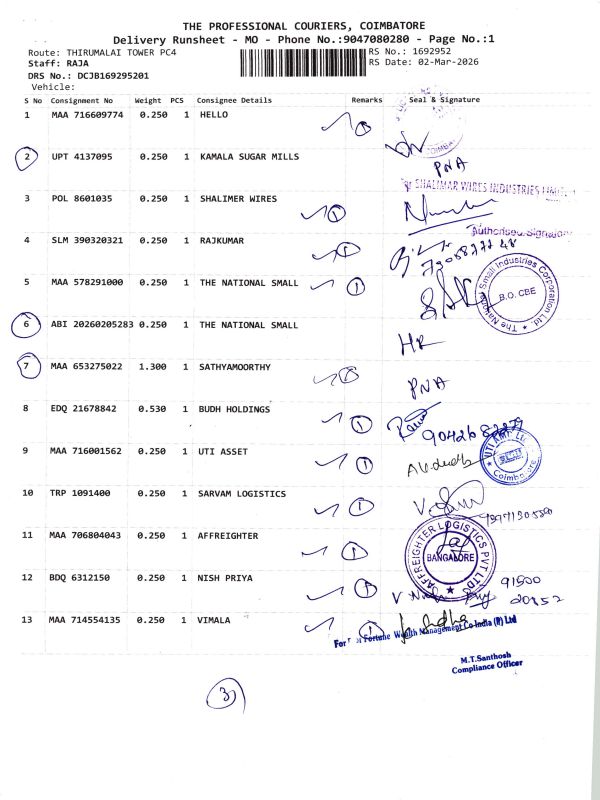 THE PROFESSIONAL COURIERS, COIMBATORE
Delivery Runsheet - MO - Phone No.:9047080280 - Page No.:1
Route: THIRUMALAI TOWER PC4 RS No.: 1692952
Staff: RAJA RS Date: 02-Mar-2026
DRS No.: DCJB169295201
Vehicle:
S No Consignment No Weight PCS Consignee Details Remarks Seal & Signature
1 MAA 716609774 0.250 1 HELLO
2 UPT 4137095 0.250 1 KAMALA SUGAR MILLS PNA
For SHALIMAR WIRES INDUSTRIES LIMITED
3 POL 8601035 0.250 1 SHALIMER WIRES 1
Authorised Signatory
4 SLM 390320321 0.250 1 RAJKUMAR 1
5 MAA 578291000 0.250 1 THE NATIONAL SMALL 1
The National Small Industries Corporation Ltd. B.O. CBE
6 ABI 20260205283 0.250 1 THE NATIONAL SMALL
7 MAA 653275022 1.300 1 SATHYAMOORTHY PNA
8 EDQ 21678842 0.530 1 BUDH HOLDINGS 1
9 MAA 716001562 0.250 1 UTI ASSET 1
UTI AMC Ltd. Coimbatore
10 TRP 1091400 0.250 1 SARVAM LOGISTICS 1
11 MAA 706804043 0.250 1 AFFREIGHTER 1
AFFREIGHTER LOGISTICS PVT LTD BANGALORE
12 BDQ 6312150 0.250 1 NISH PRIYA 1 91500
20852
13 MAA 714554135 0.250 1 VIMALA 1
For Fortune Wealth Management Co India (P) Ltd
M.T.Santhosh
Compliance Officer
3